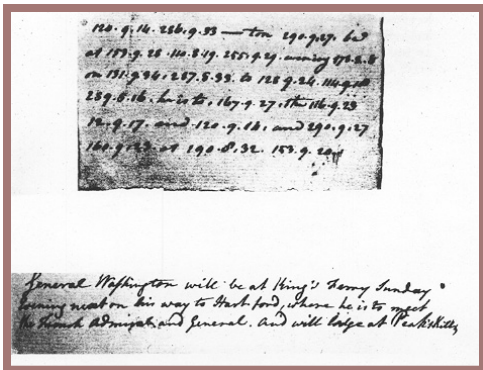 120.9.14. 286.9.33 — ton 290.9.27. be
at 153.9.28. 110.8.19. 255.9.29. evening 178.2.8
on 131.9.94. 287.8.33. to 128.9.24. 114.9.18
289.8.16. he is to, 167.9.27. the 116.9.23
12.9.17. and 120.9.14. and 290.9.27
160.9.23 at 190.8.32. 153.9.20
General Washington will be at King's Ferry Sunday
evening next on his way to Hartford, where he is to meet
the French Admiral and General. And will lodge at Peak's Kill